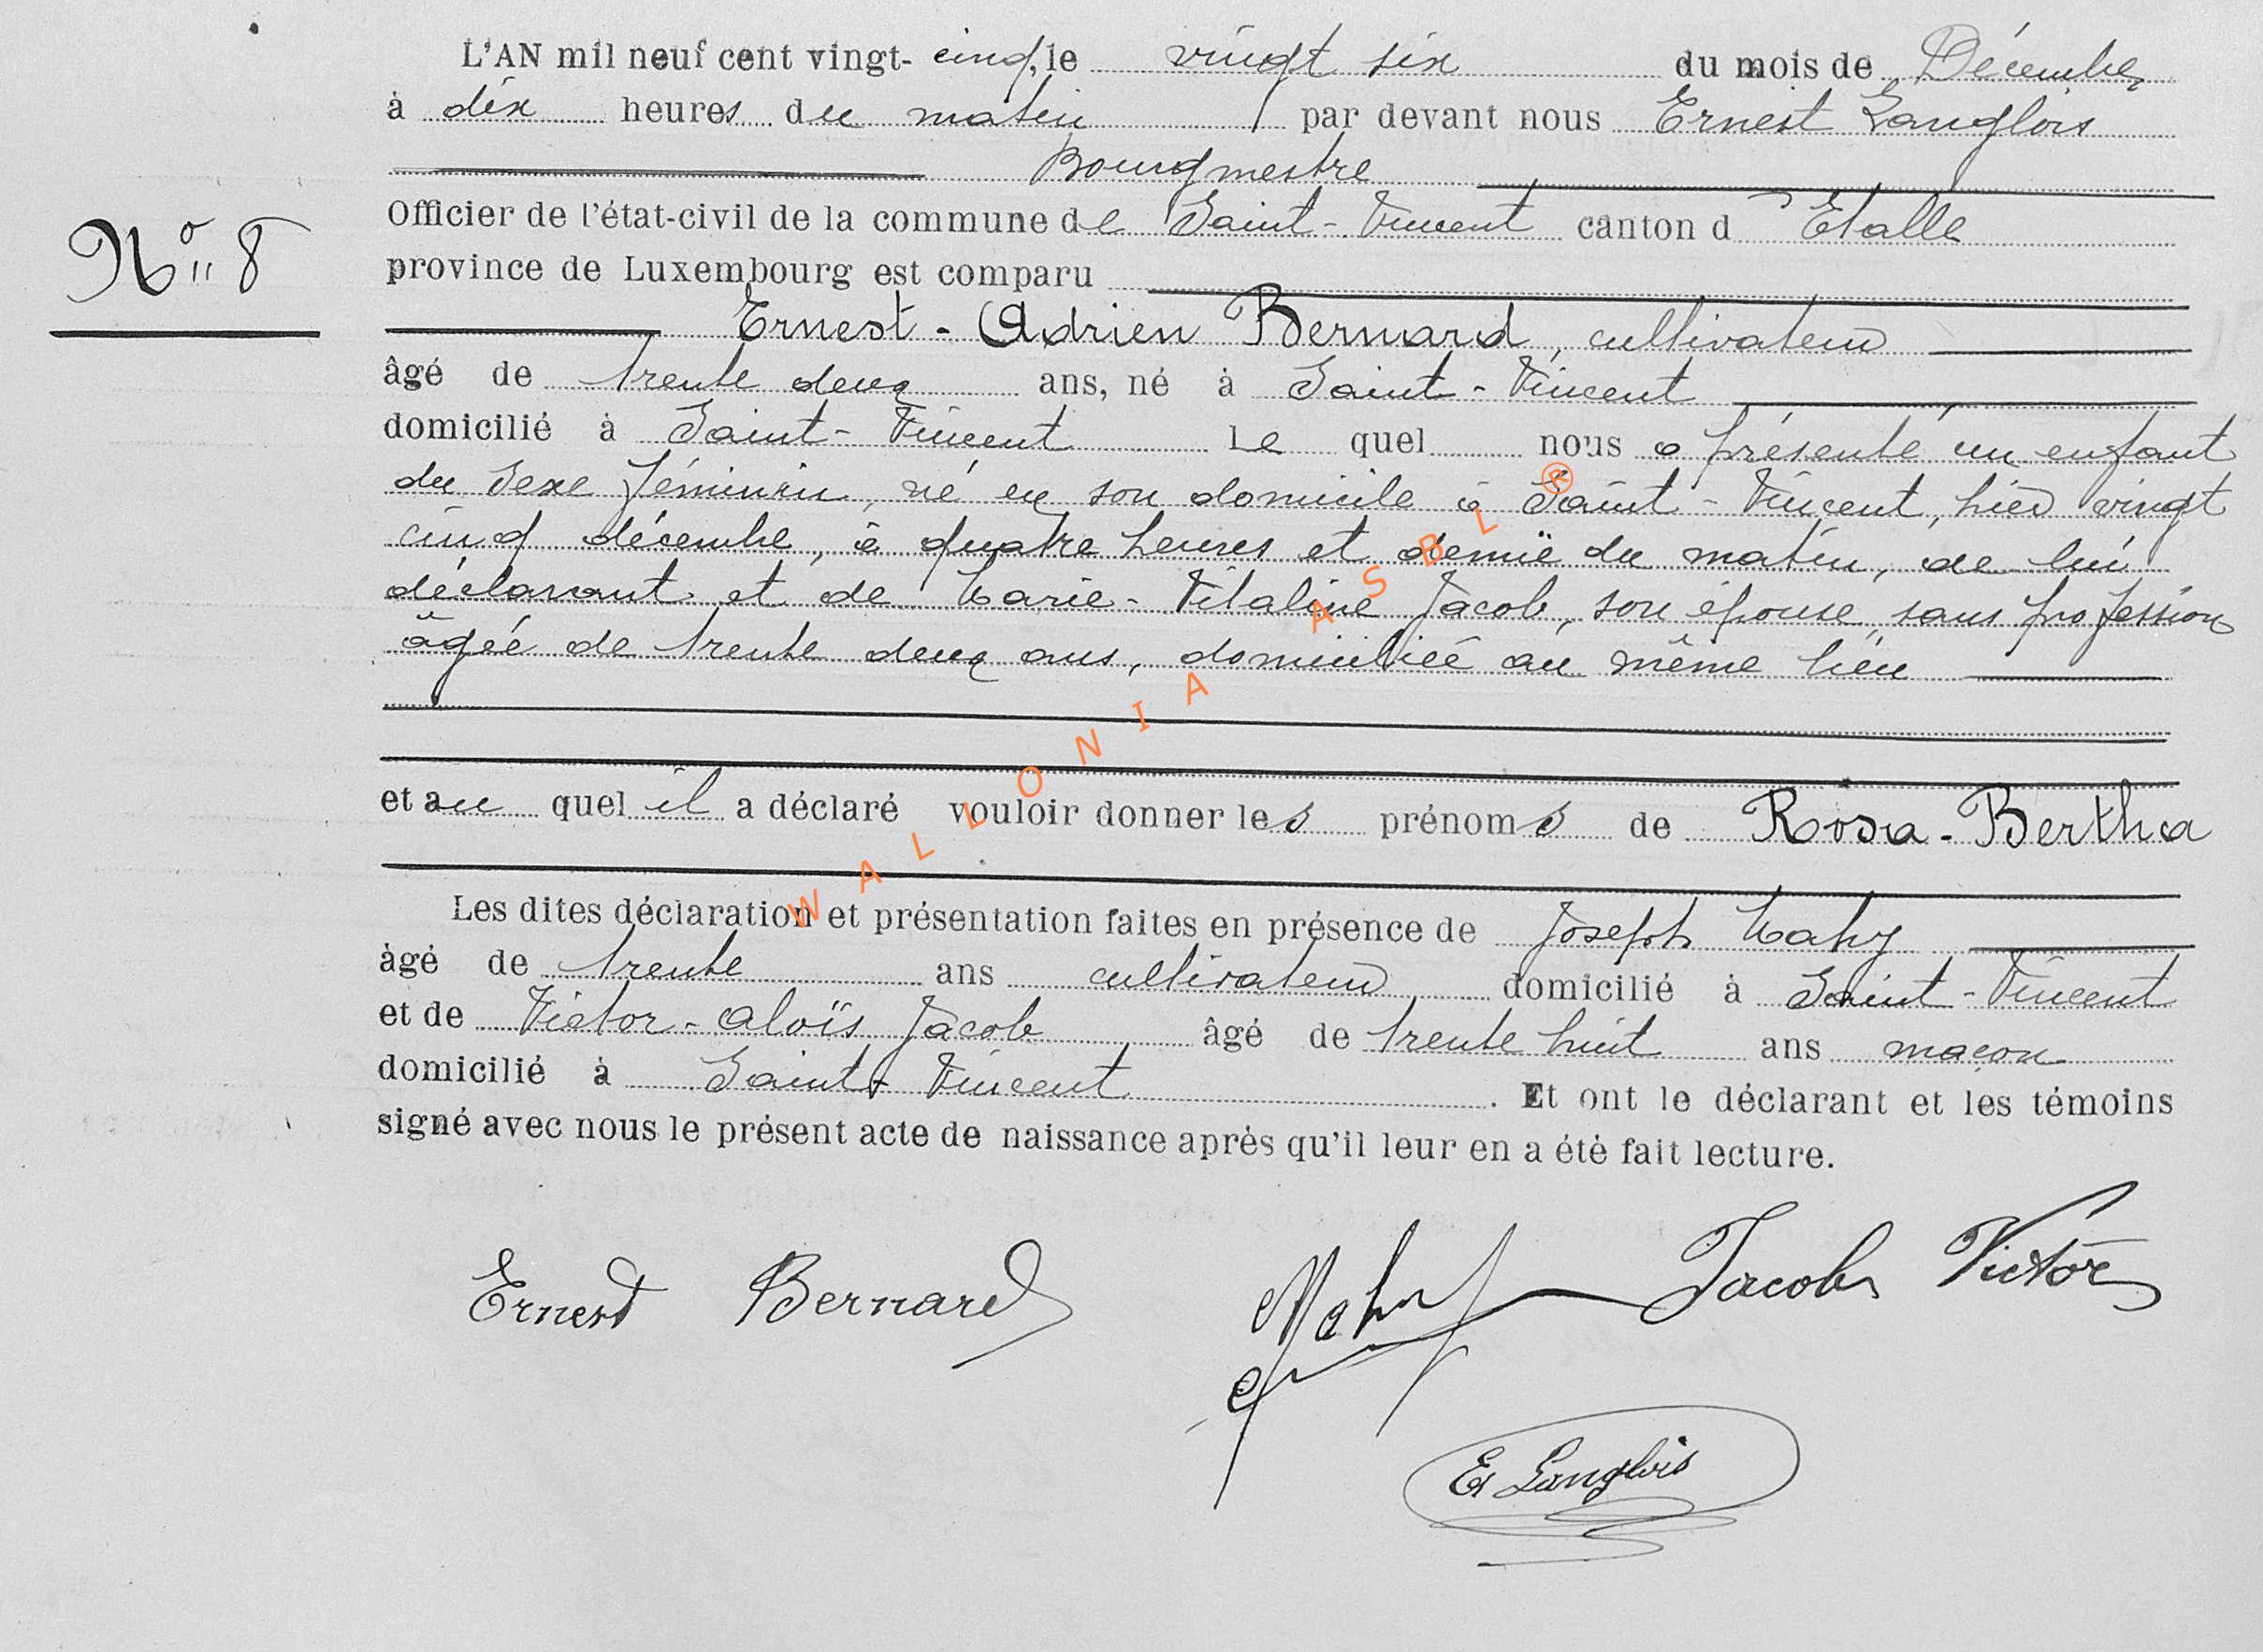 L'AN mil neuf cent vingt- cinq, le vingt six du mois de Décembre
à dix heures du matin par devant nous Ernest Langlois
Bourgmestre
Officier de l'état-civil de la commune de Saint-Vincent canton d' Etalle
N° 8
province de Luxembourg est comparu
Ernest-Adrien Bernard, cultivateur
âgé de trente deux ans, né à Saint-Vincent
domicilié à Saint-Vincent Le quel nous a présenté un enfant
du sexe féminin, né en son domicile à Saint-Vincent, hier vingt
cinq décembre, à quatre heures et demie du matin, de lui
déclarant et de Marie-Vitaline Jacob, son épouse, sans profession
âgée de trente deux ans, domiciliée au même lieu
et au quel il a déclaré vouloir donner les prénoms de Rosa-Bertha
Les dites déclaration et présentation faites en présence de Joseph Mahy
âgé de trente ans cultivateur domicilié à Saint-Vincent
et de Victor-Aloïs Jacob âgé de trente huit ans maçon
domicilié à Saint-Vincent. Et ont le déclarant et les témoins
signé avec nous le présent acte de naissance après qu'il leur en a été fait lecture.
Ernest Bernard Mahy Jacob Victor
E Langlois
WALLONIA ASBL ®